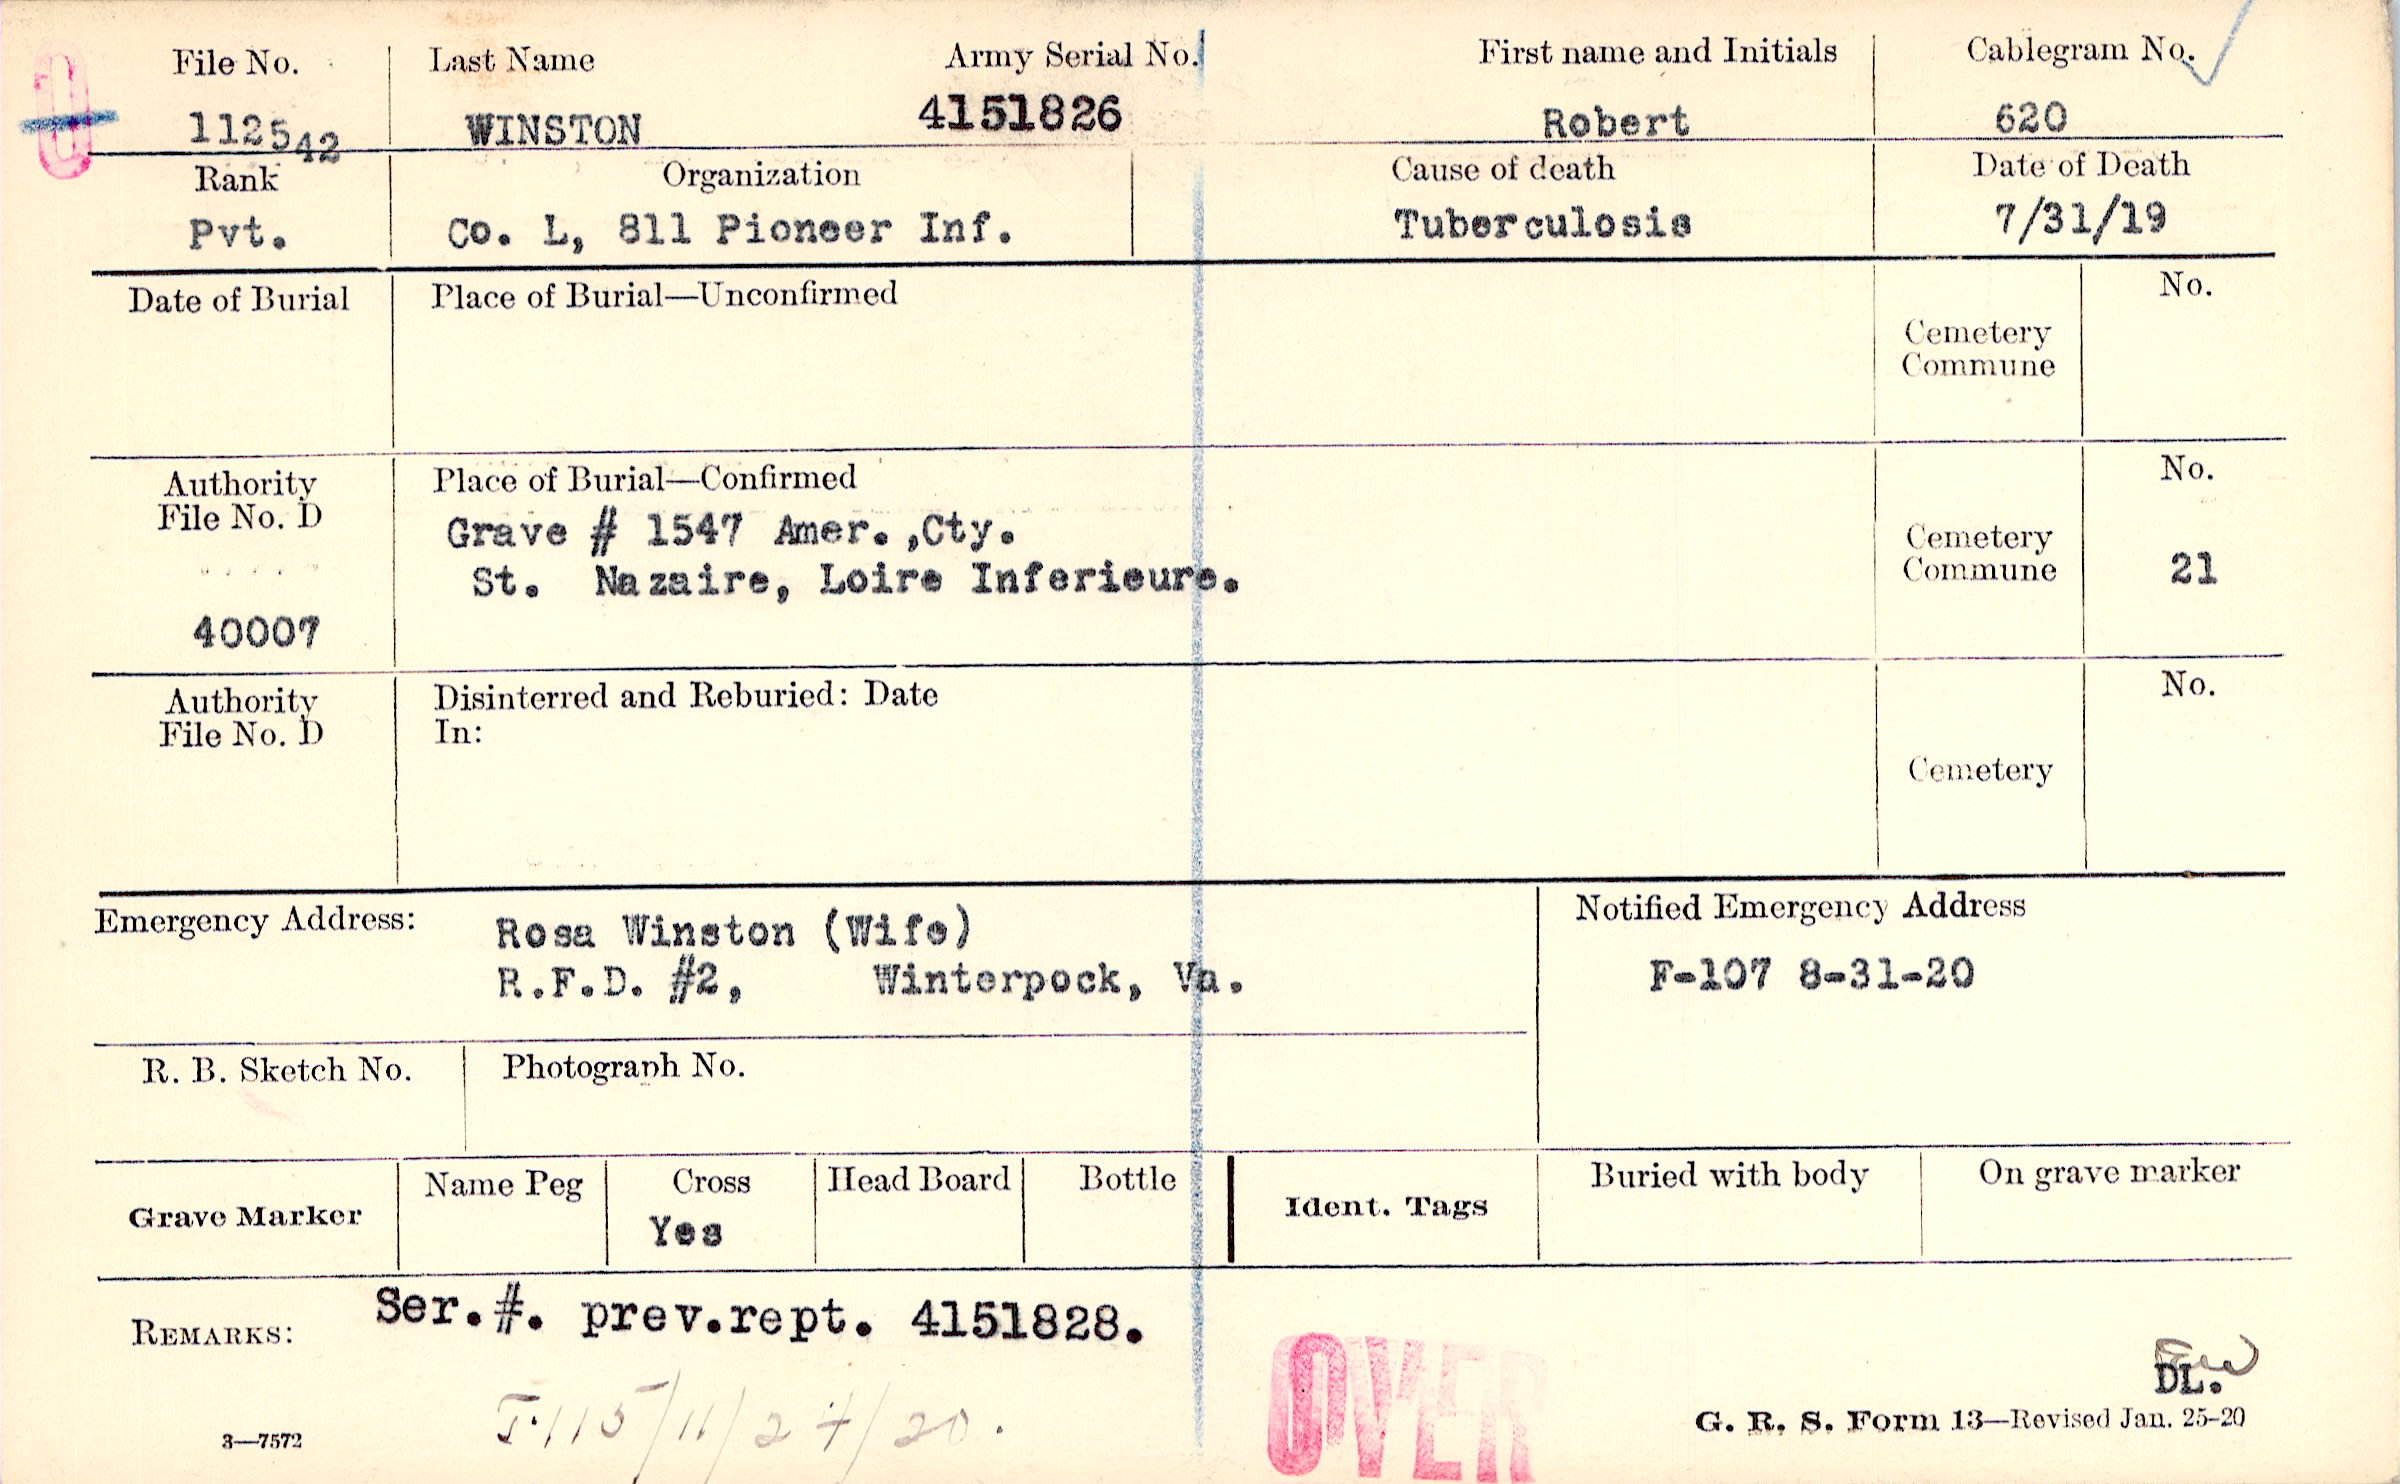 File No. Last Name Army Serial No. First name and Initials Cablegram No.
112542 WINSTON 4151826 Robert 620
Rank Organization Cause of death Date of Death
Pvt. Co. L, 811 Pioneer Inf. Tuberculosis 7/31/19
Date of Burial Place of Burial—Unconfirmed No.
Cemetery
Commune
Authority Place of Burial—Confirmed No.
File No. D
Grave # 1547 Amer.,Cty. Cemetery
St. Nazaire, Loire Inferieure. Commune 21
40007
Authority Disinterred and Reburied: Date No.
File No. D In:
Cemetery
Emergency Address: Rosa Winston (Wife) Notified Emergency Address
R.F.D. #2, Winterpock, Va. F-107 8-31-20
R. B. Sketch No. Photograph No.
Grave Marker Name Peg Cross Head Board Bottle Ident. Tags Buried with body On grave marker
Yes
REMARKS: Ser.#. prev.rept. 4151828.
OVER
DL.
3—7572 G. R. S. Form 13—Revised Jan. 25-20